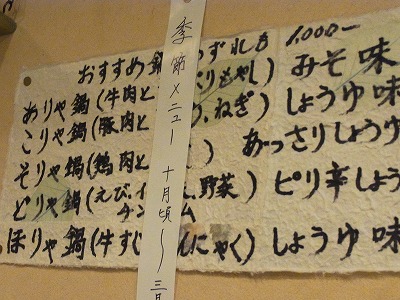 おすすめ鍋 ずれも 1,000-
ありや鍋(牛肉と ぶりもやし) みそ味
こりや鍋(豚肉と ねぎ) しょうゆ味
そりや鍋(鶏肉と ) あっさりしょうゆ
どりや鍋(えび、イ 、野菜) ピリ辛しょう
チン ム
ほりや鍋(牛すじ んにゃく) しょうゆ味
季節メニュー 十月頃〜三月